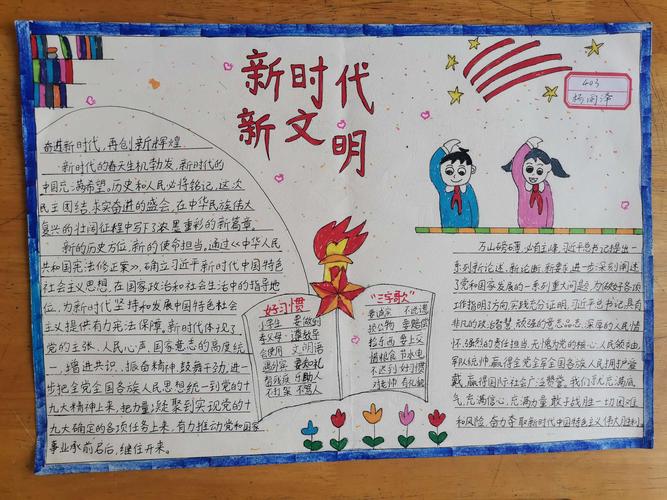 新时代
新文明
403
奋进新时代，再创新辉煌
新时代的春天生机勃发，新时代的
中国充满希望。历史和人民必将铭记，这次
民主团结、求实奋进的盛会，在中华民族伟大
复兴的壮阔征程中写下浓墨重彩的新篇章。
新的历史方位，新的使命担当，通过《中华人民
共和国宪法修正案》，确立习近平新时代中国特色
社会主义思想，在国家政治和社会生活中的指导地
位，为新时代坚持和发展中国特色社会
主义提供有力宪法保障，新时代体现了
党的主张、人民心声，国家意志的高度统
一，增进共识、振奋精神、鼓舞干劲，进一
步把全党全国各族人民思想统一到党的十
九大精神上来，把力量凝聚到实现党的十
九大确定的各项任务上来，有力推动党和国家
事业承前启后，继往开来。
好习惯
小学生 要做到
孝父母
会使用 文明语
遇外宾 要知礼
帮残疾 乐助人
不打架 不骂人
"三字歌"
要诚实 不说谎
损公物 要赔偿
拾东西 要上交
惜粮食 节水电
不迟到 好习惯
万山磅礴，必有主峰，习近平总书记提出一
系列新论述、新论断、新要求，进一步深刻阐述
了党和国家发展的一系列重大问题，为做好各项
工作指明了方向，实践充分证明，习近平总书记，具有
非凡的政治智慧、顽强的意志品志、深厚的人民情
怀、强烈的责任担当，无愧为党的核心、人民领袖、
军队统帅，赢得全党全军全国各族人民拥护爱
戴，赢得国际社会广泛赞誉。我们就充满底
气、充满信心、充满力量，敢于战胜一切困难
和风险，奋力夺取新时代中国特色主义伟大胜利